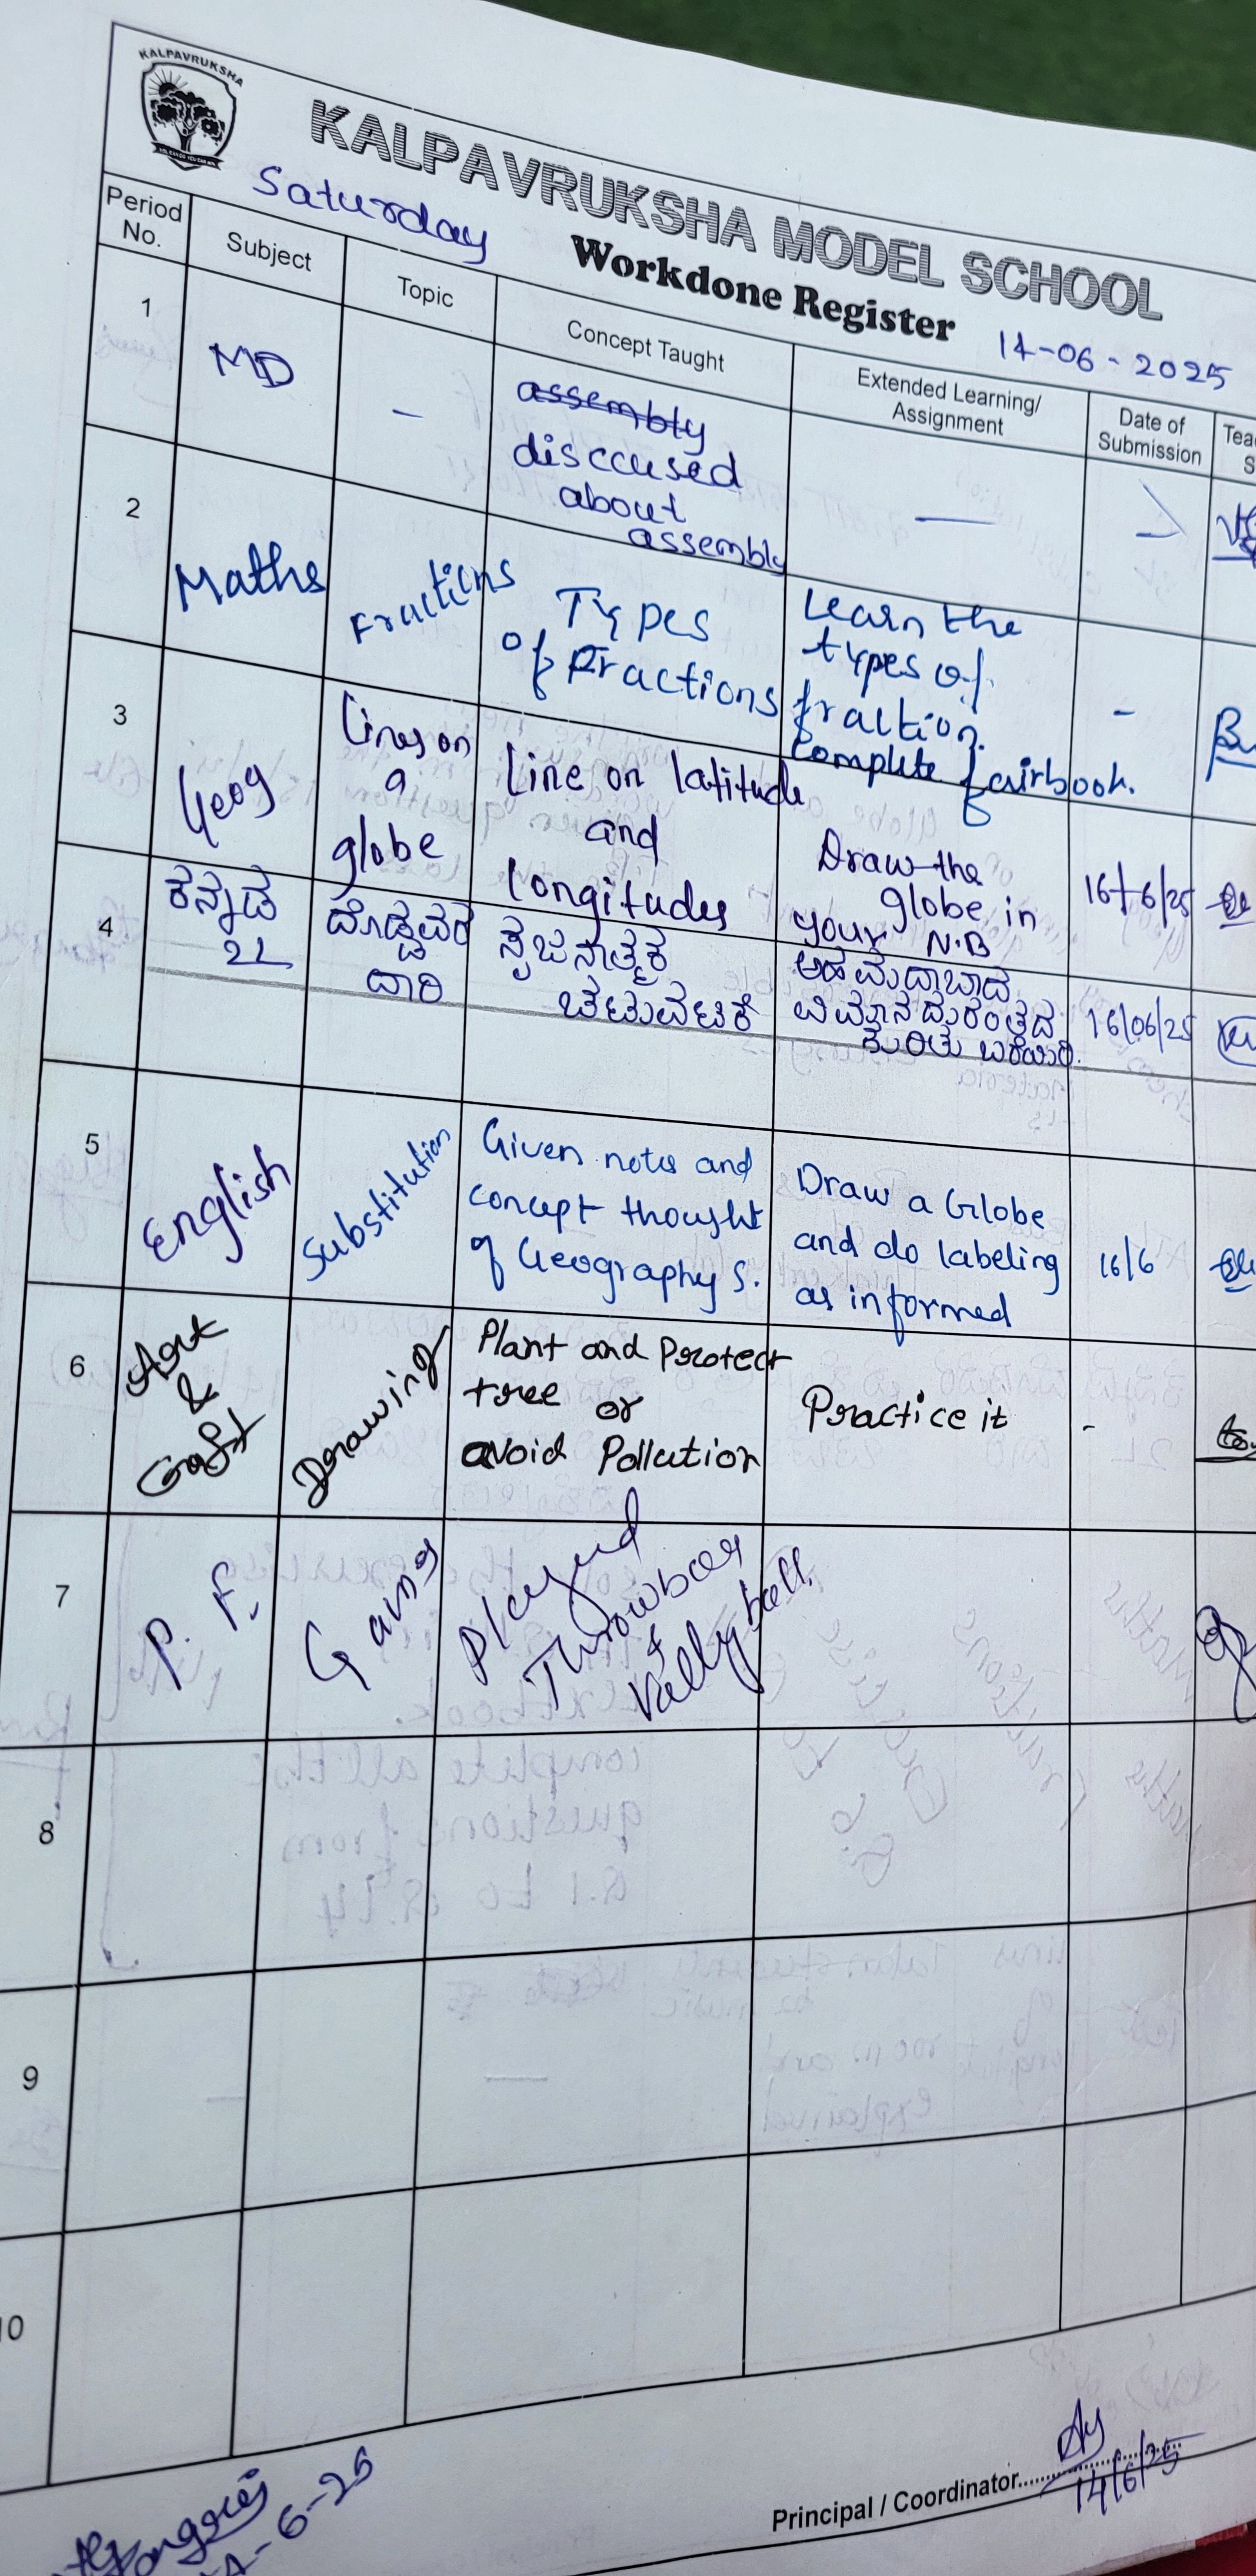 KALPAVRUKSHA
KALPAVRUKSHA MODEL SCHOOL
Saturday
Workdone Register
14-06-2025
Period No.
Subject
Topic
Concept Taught
Extended Learning/
Assignment
Date of
Submission
1
MD
-
assembly
disccused
about
assembly
—
2
Maths
Fractions
Types
of Fractions
Learn the
types of
fraction.
complete fairbook.
-
3
Geog
Lines on
a
globe
Line on latitude
and
Longitudes
Draw the
globe in
your N.B
16/6/25
4
ಕನ್ನಡ
2L
ದೊಡ್ಡವರ
ದಾರಿ
ಸೃಜನಾತ್ಮಕ
ಚಟುವಟಿಕೆ
ಅಹಮದಾಬಾದ್
ವಿಮಾನ ದುರಂತದ
ಕುರಿತು ಬರೆಯಿರಿ.
16/06/25
5
English
Substitution
Given notes and
concept thought
of Geography S.
Draw a Globe
and do labeling
as informed
16/6
6
Art
&
Craft
Drawing
Plant and Protect
tree or
avoid Pollution
Practice it
-
7
P. E.
Game
Played
Throwball
&
Vallyball.
8
9
10
Principal / Coordinator
14/6/25